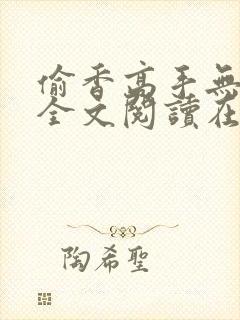 偷香高手無
全文閱讀在
陶希聖